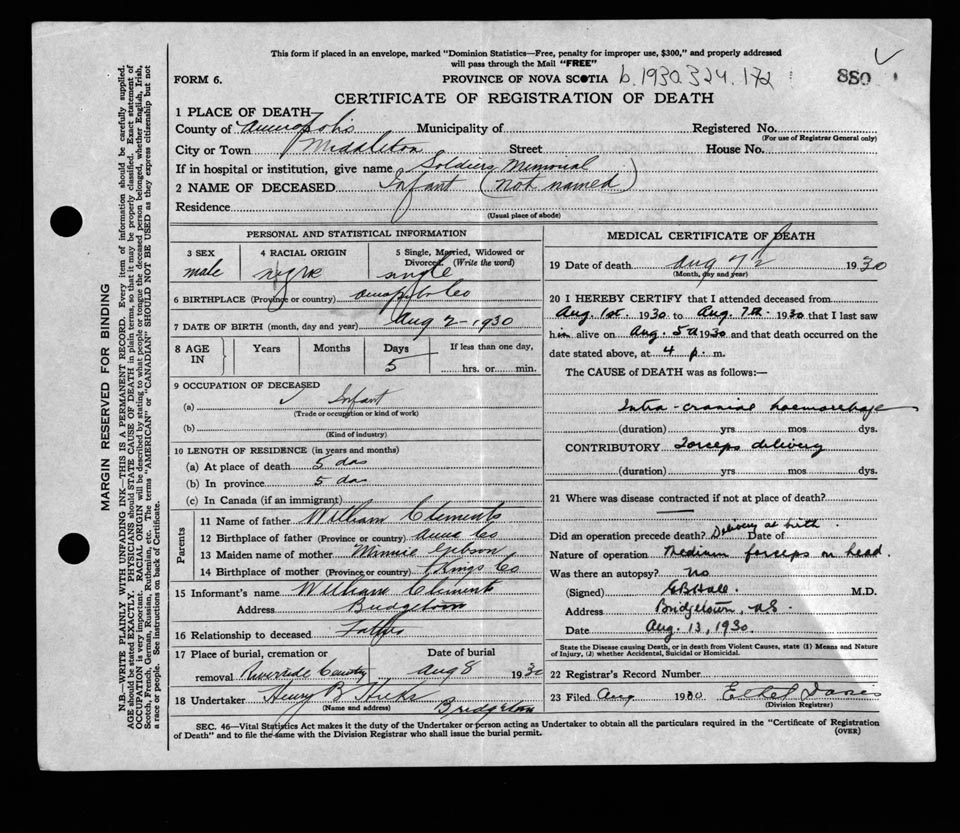 This form if placed in an envelope, marked "Dominion Statistics—Free, penalty for improper use, $300," and properly addressed
will pass through the Mail "FREE"
FORM 6.
PROVINCE OF NOVA SCOTIA b.1930.324.172 880
CERTIFICATE OF REGISTRATION OF DEATH
1 PLACE OF DEATH
County of Annapolis Municipality of Registered No.
(For use of Registrar General only)
City or Town Middleton Street House No.
If in hospital or institution, give name Soldiers Memorial
2 NAME OF DECEASED Infant (Not named)
Residence
(Usual place of abode)
PERSONAL AND STATISTICAL INFORMATION
3 SEX 4 RACIAL ORIGIN 5 Single, Married, Widowed or
Divorced (Write the word)
male negro single
6 BIRTHPLACE (Province or country) Annapolis Co
7 DATE OF BIRTH (month, day and year) Aug 2 - 1930
8 AGE IN Years Months Days If less than one day,
5 hrs. or min.
9 OCCUPATION OF DECEASED
(a) Infant
(Trade or occupation or kind of work)
(b)
(Kind of industry)
10 LENGTH OF RESIDENCE (in years and months)
(a) At place of death 5 das
(b) In province 5 das
(c) In Canada (if an immigrant)
Parents
11 Name of father William Clements
12 Birthplace of father (Province or country) Anna Co
13 Maiden name of mother Minnie Gibson
14 Birthplace of mother (Province or country) Kings Co
15 Informant's name William Clements
Address Bridgetown
16 Relationship to deceased Father
17 Place of burial, cremation or Date of burial
removal Riverside Aug 8 1930
18 Undertaker Henry B Hicks
(Name and address) Bridgetown
MEDICAL CERTIFICATE OF DEATH
19 Date of death Aug 7th 1930
(Month, day and year)
20 I HEREBY CERTIFY that I attended deceased from
Aug. 1st. 1930 to Aug. 7th. 1930 that I last saw
him alive on Aug. 5th 1930 and that death occurred on the
date stated above, at 4 p. m.
The CAUSE of DEATH was as follows:—
Intra-cranial haemorrhage
(duration) yrs mos dys.
CONTRIBUTORY Forceps delivery
(duration) yrs mos dys.
21 Where was disease contracted if not at place of death?
Did an operation precede death? Delivery at birth. Date of
Nature of operation Medium forceps on head.
Was there an autopsy? No
(Signed) E B Hall. M.D.
Address Bridgetown, N.S.
Date Aug. 13, 1930.
State the Disease causing Death, or in death from Violent Causes, state (1) Means and Nature
of Injury, (2) whether Accidental, Suicidal or Homicidal.
22 Registrar's Record Number
23 Filed Aug 1930 Ethel Davis
(Division Registrar)
SEC. 46—Vital Statistics Act makes it the duty of the Undertaker or person acting as Undertaker to obtain all the particulars required in the "Certificate of Registration
of Death" and to file the same with the Division Registrar who shall issue the burial permit.
(OVER)
MARGIN RESERVED FOR BINDING
N.B.—WRITE PLAINLY WITH UNFADING INK—THIS IS A PERMANENT RECORD. Every item of information should be carefully supplied.
AGE should be stated EXACTLY. PHYSICIANS should STATE CAUSE OF DEATH in plain terms, so that it may be properly classified. Exact statement of
OCCUPATION is very important. RACIAL ORIGIN will be described by stating to what people or tongue the deceased person belonged, whether English, Irish,
Scotch, French, German, Russian, Ruthenian, etc. The terms "AMERICAN" or "CANADIAN" SHOULD NOT BE USED as they express citizenship but not
a race or people. See instructions on back of Certificate.